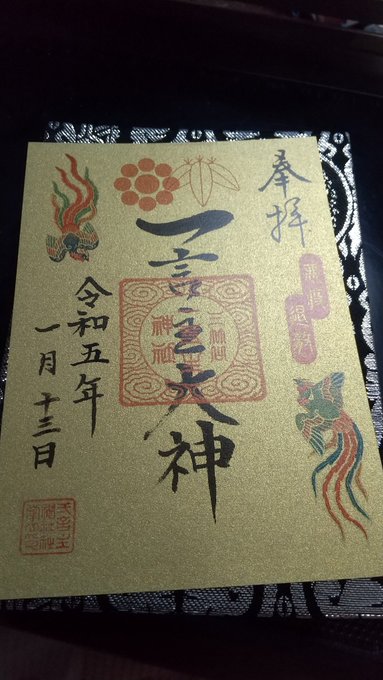 奉拝
一言主大神
令和五年
一月十三日